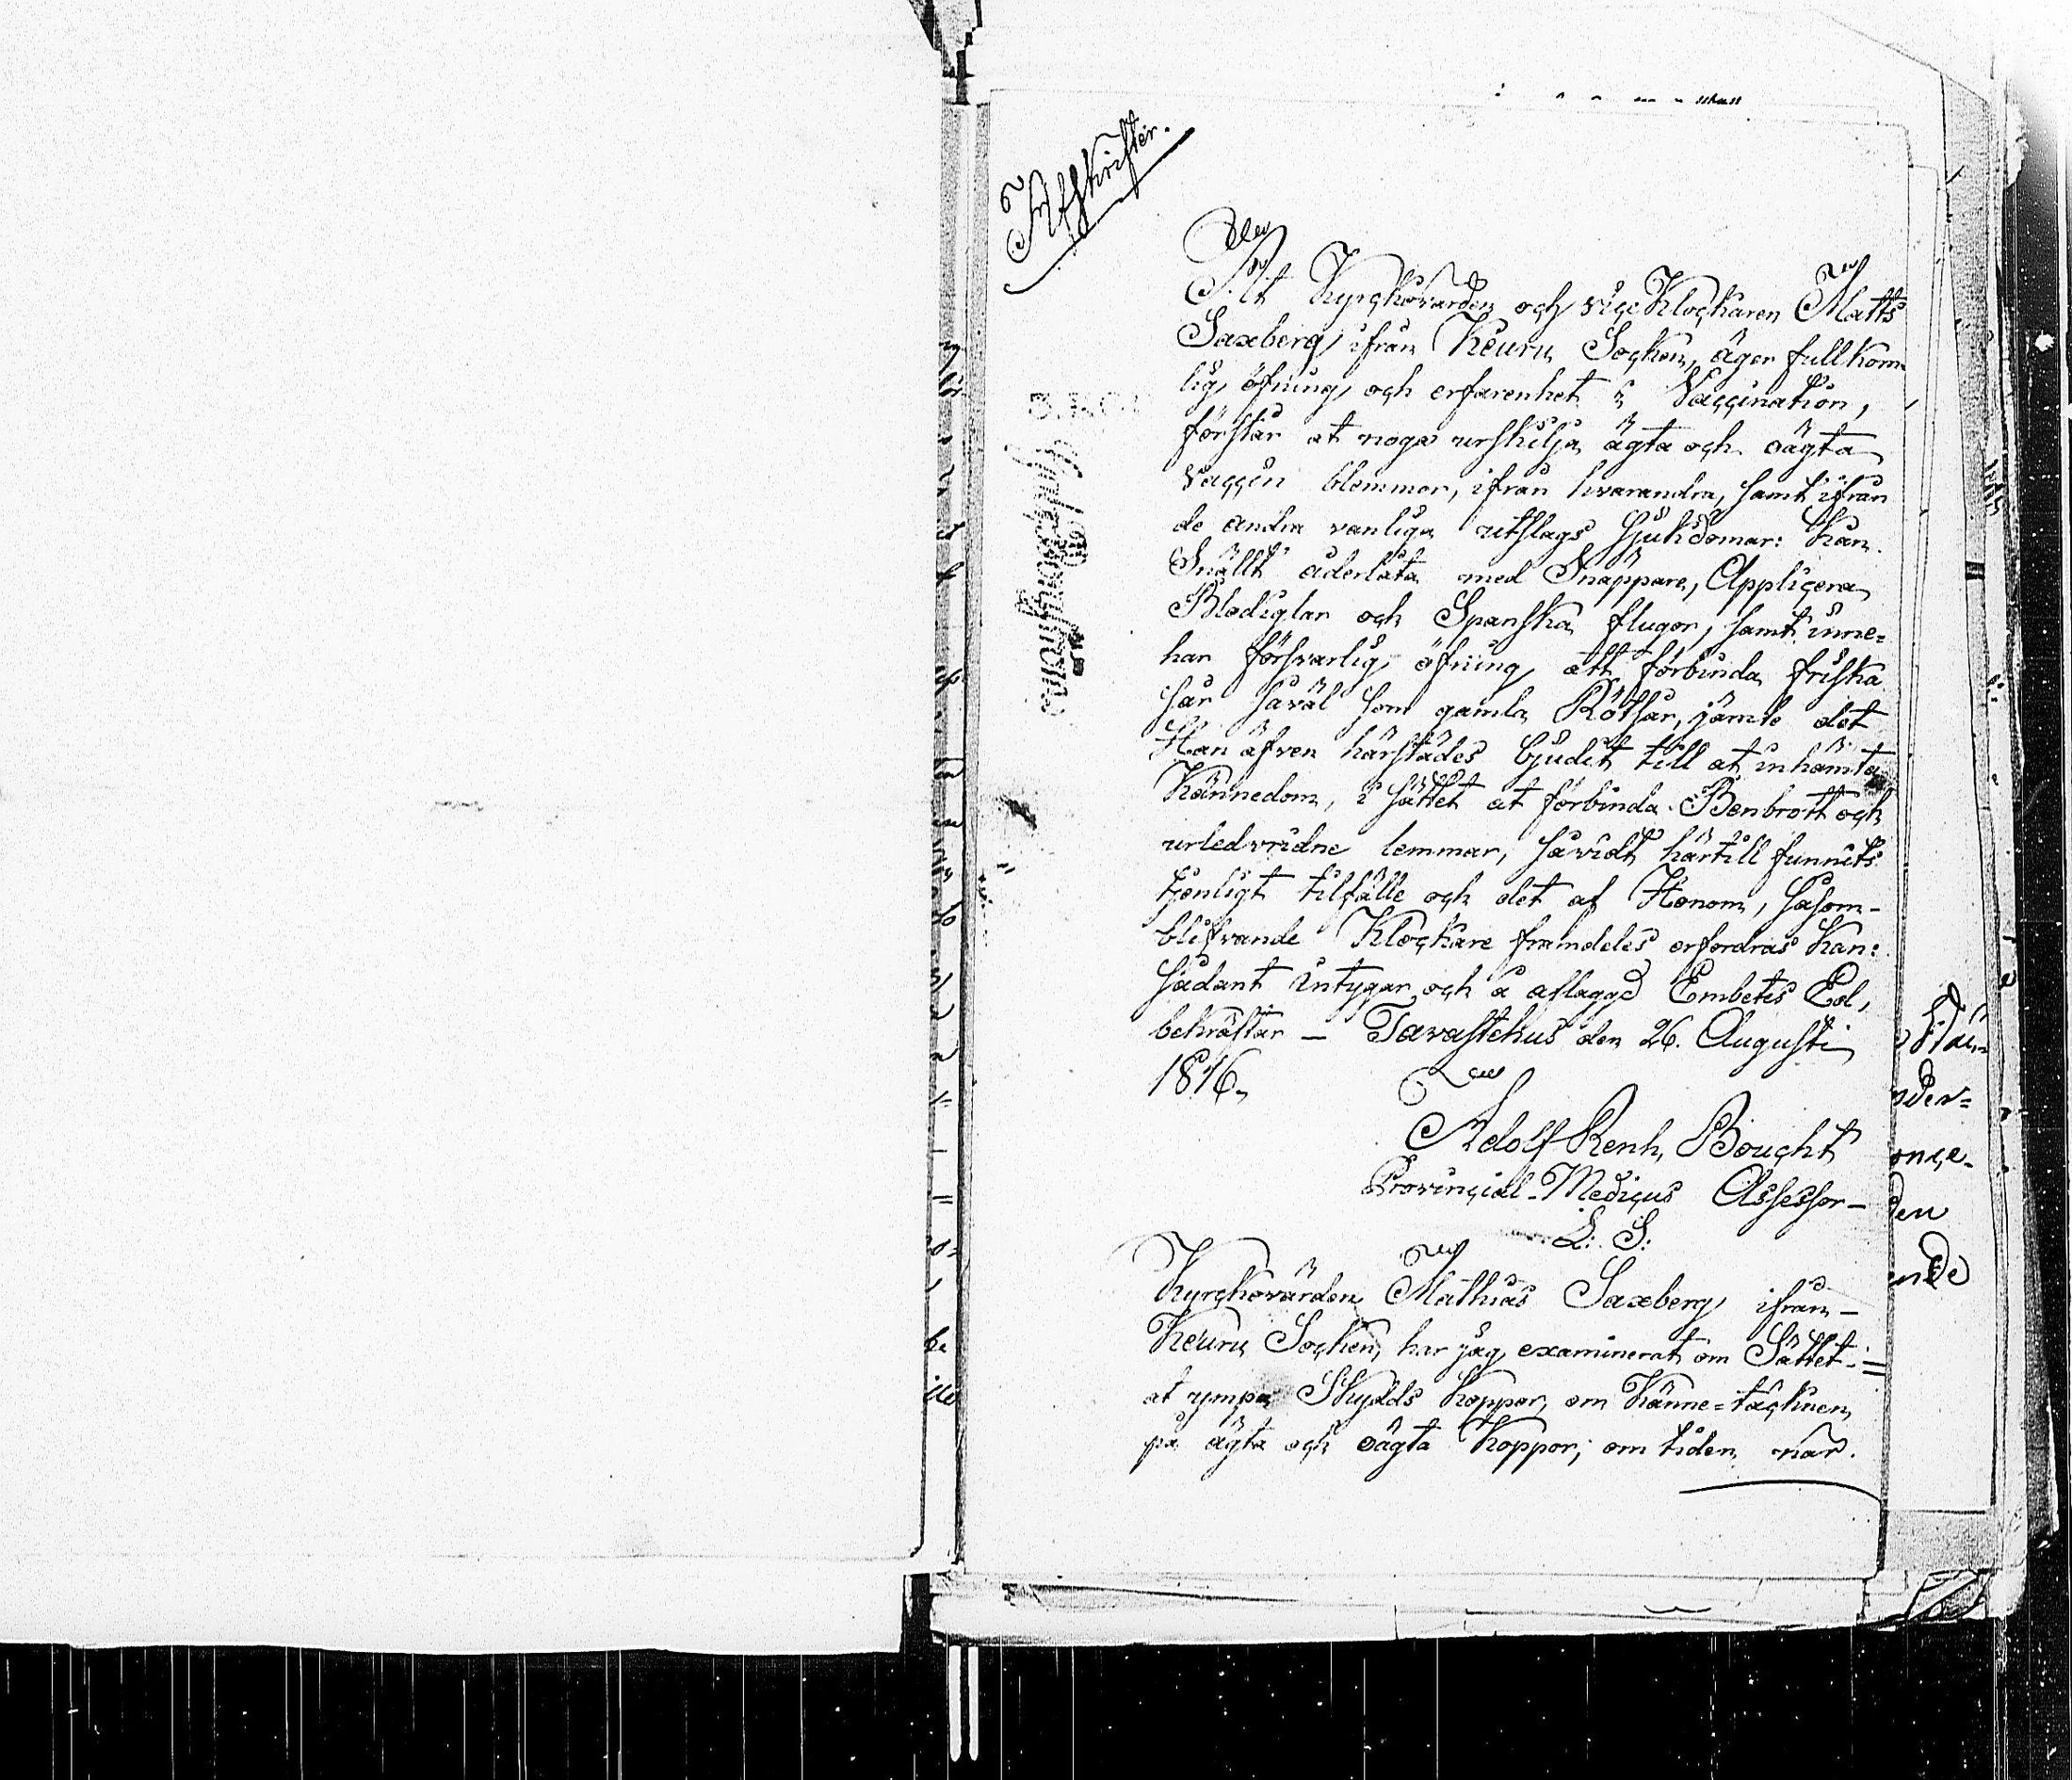 Afskrifter.
At Kyrckovärden och vice Klockaren Matts
Saxberg ifrån Keuru Socken, äger fullkom
lig öfning och erfarenhet i Vaccination,
förstår at noga urskilja ägta och oägta
vaccin blemmor, ifrån hvarandra, samt ifrån
de andra vanliga utslags sjukdomar: kan
Snällt åderlåta med Snäppare, Applicera
Blodiglar och Spanska flugor, samt inne=
har försvarlig öfning att förbinda friska
sår såväl som gamla Rötsår, jämte det
Han äfven härstädes bjudit till at inhämta
Kännedom, i sättet at förbinda Benbrott och
urledvridne lemmar, såvidt härtill funnits
tjenligt tilfälle och det af Honom, såsom-
blifvande Klockare framdeles erfordras kan:
sådant intygar och å aflagd Embets Ed,
bekräftar – Tavastehus den 26. Augusti
1816.
Adolf Renh. Bought
Provincial-Medicus Assessor –
L: S:
Kyrckovärden Mathias Saxberg ifrån –
Keuru Socken, har jag examinerat om Sättet=
at ympa Skydds koppor, om Känne=täcknen
på ägta och oägta Koppor; om tiden när.